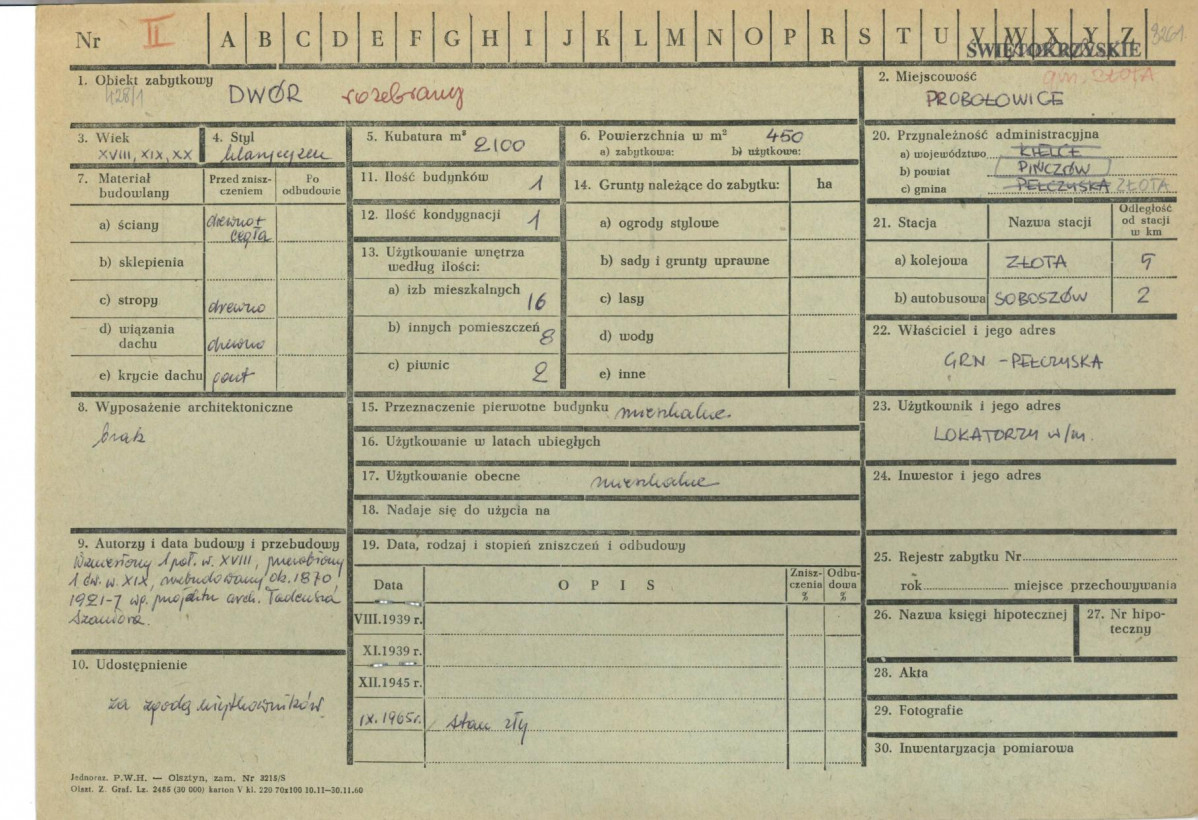 Nr II A B C D E F G H I J K L M N O P R S T U V W X Y Z
ŚWIĘTOKRZYSKIE
1. Obiekt zabytkowy
DWÓR rozebrany
2. Miejscowość
gm. ZŁOTA
PROBOŁOWICE
3. Wiek
XVIII, XIX, XX
4. Styl
klasycyzm
5. Kubatura m³ 2100
6. Powierzchnia w m² 450
a) zabytkowa: b) użytkowa:
20. Przynależność administracyjna
a) województwo KIELCE
b) powiat PIŃCZÓW
c) gmina PEŁCZYSKA ZŁOTA
7. Materiał budowlany
Przed zniszczeniem
Po odbudowie
a) ściany drewno + cegła
b) sklepienia
c) stropy drewno
d) wiązania dachu drewno
e) krycie dachu gont
11. Ilość budynków 1
12. Ilość kondygnacji 1
13. Użytkowanie wnętrza według ilości:
a) izb mieszkalnych 16
b) innych pomieszczeń 8
c) piwnic 2
14. Grunty należące do zabytku: ha
a) ogrody stylowe
b) sady i grunty uprawne
c) lasy
d) wody
e) inne
21. Stacja Nazwa stacji Odległość od stacji w km
a) kolejowa ZŁOTA 5
b) autobusowa SOBOSZÓW 2
22. Właściciel i jego adres
GRN - PEŁCZYSKA
8. Wyposażenie architektoniczne
brak
15. Przeznaczenie pierwotne budynku mieszkalne
16. Użytkowanie w latach ubiegłych
17. Użytkowanie obecne mieszkalne
18. Nadaje się do użycia na
23. Użytkownik i jego adres
LOKATORZY w/m.
24. Inwestor i jego adres
9. Autorzy i data budowy i przebudowy
Wzniesiony 1 poł. w. XVIII, przerobiony
1 ćw. w. XIX, rozbudowany ok. 1870,
1921-7 wp. projektu arch. Tadeusza
Szaniora.
10. Udostępnienie
za zgodą użytkowników.
19. Data, rodzaj i stopień zniszczeń i odbudowy
Data OPIS Zniszczenia % Odbudowa %
VIII.1939 r.
XI.1939 r.
XII.1945 r.
IX.1965 r. stan zły
25. Rejestr zabytku Nr
rok miejsce przechowywania
26. Nazwa księgi hipotecznej
27. Nr hipoteczny
28. Akta
29. Fotografie
30. Inwentaryzacja pomiarowa
Jednoraz. P.W.H. — Olsztyn, zam. Nr 3218/S
Olszt. Z. Graf. Lz. 2485 (30 000) karton V kl. 220 70x100 10.11—30.11.60